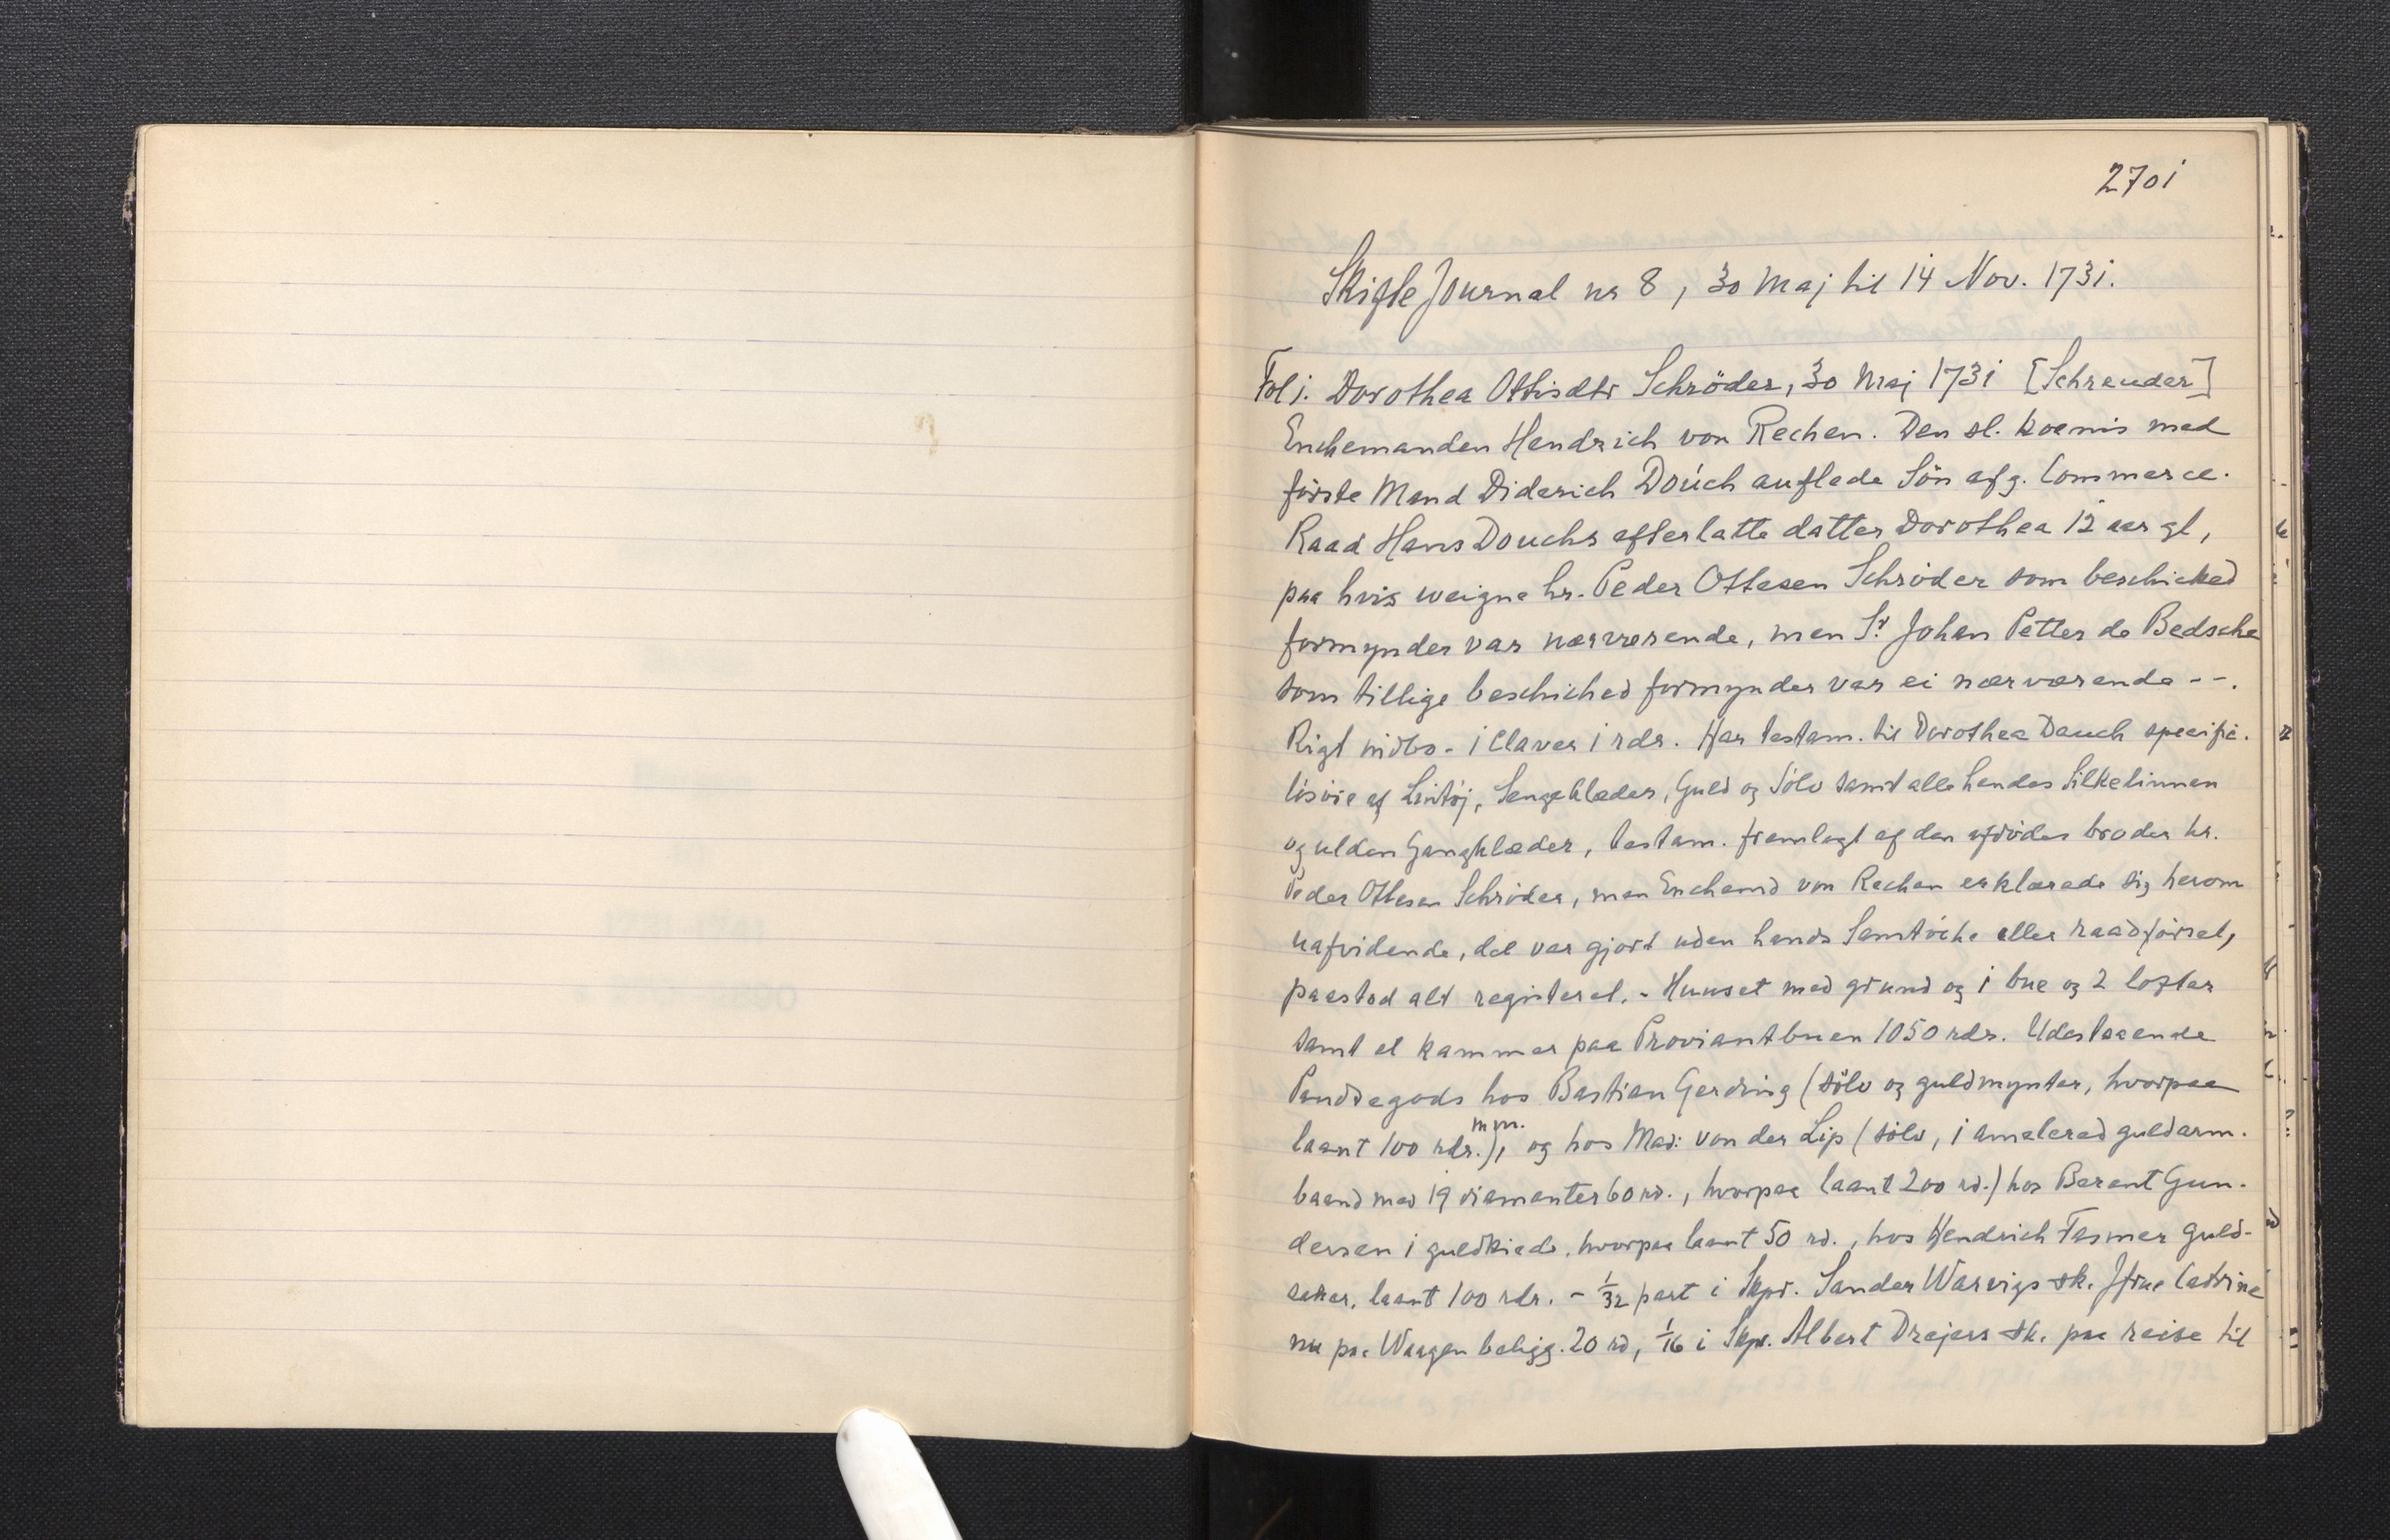 2701
Skifte Journal nr 8, 30 Maj til 14 Nov. 1731.
Fol 1. Dorothea Ottisdtr Schröder, 30 Maj 1731 [Schreuder]
Enchemanden Hendrich von Rechen. Den sl. koenis med
förste Mand Diderich Douch auflede Sön afg. Commerce.
Raad Hans Douchs efterlatte datter Dorothea 12 aar gl,
paa hvis weigne hr. Peder Ottesen Schröder som beschicked
formynder var nærværende, men Sr. Johan Petter de Bedsche
som tillige beschiched formynder var ei nærværende --.
Rigt indbo - 1 Claver 1 rdr. Har testam. til Dorothea Dauch specific.
lösöre af Lintöj, Sengeklæder, Guld og Sölv samt alle hendes Silkelinnen
og ulden Gangklæder, testam. fremlagt af den afdödes broder hr.
Peder Ottesen Schröder, men Enchemd von Rechen erklærede sig herom
uafvidende, det var gjort uden hands Samtöche eller raadförsel,
paastod alt registeret. - Huuset med grund og 1 bue og 2 lofter
samt et kammer paa Proviantbuen 1050 rdr. Udestaaende
Panddegods hos Bastian Gerding (sölv og guldmynter, hvorpaa
laant 100 rdr.), m.m. og hos Mad: von der Lip (sölv, 1 amelered guldarm-
baand med 19 diamanter 60 rd., hvorpaa laant 200 rd.) hos Berent Gun-
dersen 1 guldkiede, hvorpaa laant 50 rd., hos Hendrich Fasmer guld-
saker, laant 100 rdr. - 1/32 part i Skpr. Sander Warvigs sk. Jfrue Catrine
nu paa Waagen beligg. 20 rd, 1/16 i Skpr. Albert Drejers sk. paa reise til